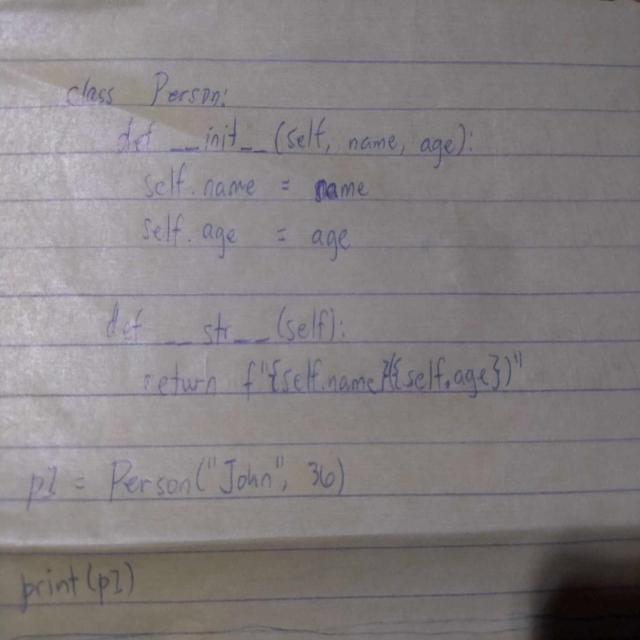 class Person:
def __init__(self, name, age):
self.name = name
self.age = age
def __str__(self):
return f"{self.name}({self.age})"
p1 = Person("John", 36)
print(p1)